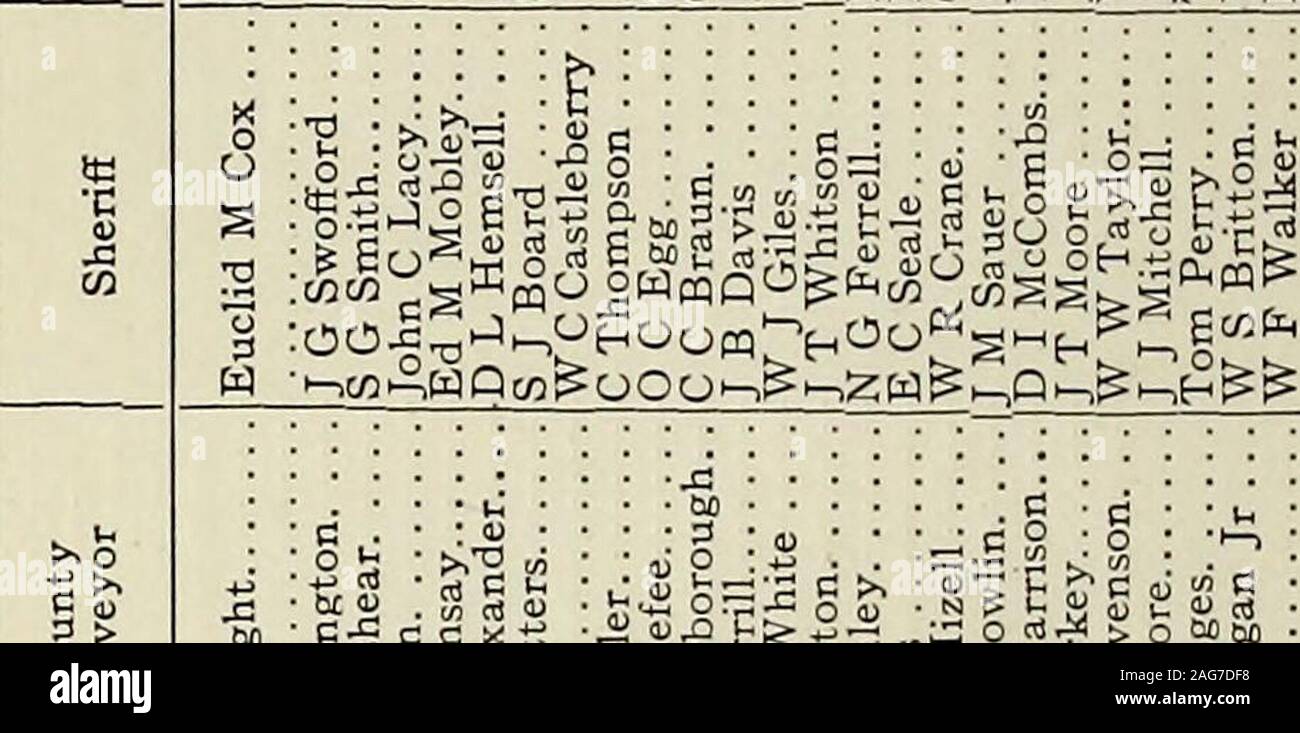 unty
veyor Sheriff
ght....... Euclid M Cox ...
ngton. ... J G Swofford....
hear. .... S G Smith......
n. ....... John C Lacy.....
nsay...... Ed M Mobley....
xander... D L Hemsell. ...
ters...... S J Board ......
W C Castleberry .
ler....... C Thompson ....
efee...... O C Egg........
borough.. C C Braun. .....
rrill...... J B Davis ......
White .... W J Giles.......
ton....... J T Whitson ....
ley....... N G Ferrell.....
s ........ E C Seale.......
izell..... W R Crane......
owlin. ... J M Sauer ......
arrison... D I McCombs...
key...... J T Moore ......
venson. .. W W Taylor....
ore....... J J Mitchell. ....
ges. ..... Tom Perry......
gan Jr ... W S Britton....
W F Walker ...
alamy
Image ID: 2AG7DF8
www.alamy.com